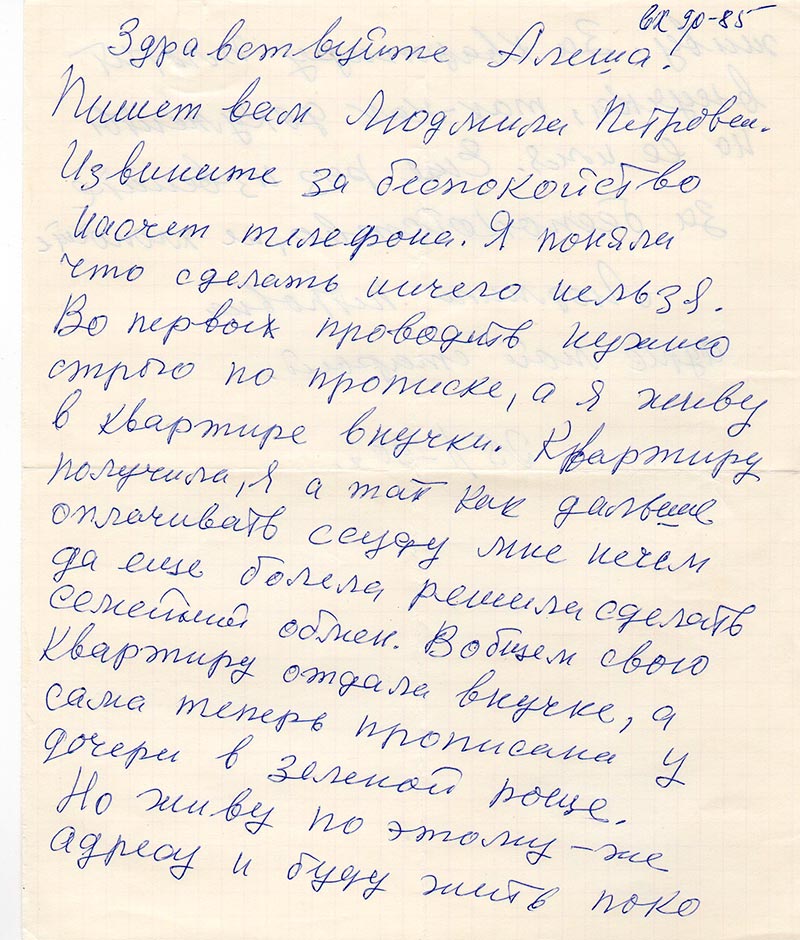 вх 90-85
Здравствуйте Алеша!
Пишет вам Людмила Петровна.
Извините за беспокойство
насчет телефона. Я поняла
что сделать ничего нельзя.
Во первых проводить нужно
строго по прописке, а я живу
в квартире внучки. Квартиру
получила, я а так как дальше
оплачивать ссуду мне нечем
да еще болела решила сделать
семейный обмен. Вобщем свою
квартиру отдала внучке, а
сама теперь прописана у
дочери в зеленой роще.
Но живу по этому-же
адресу и буду жить поко